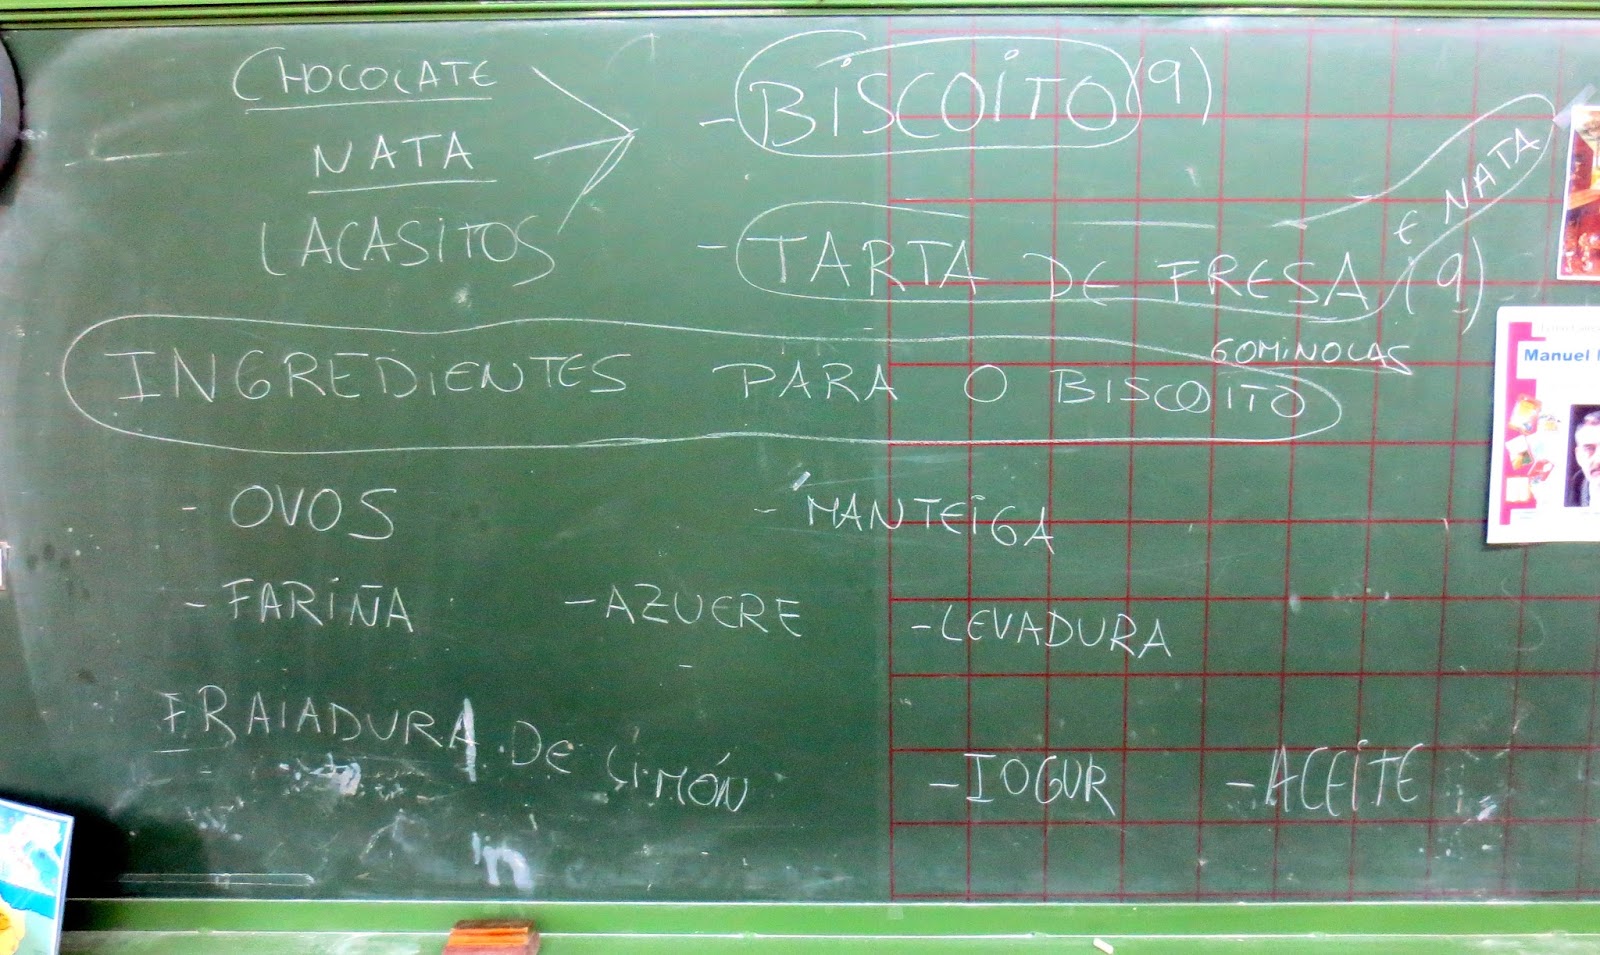 CHOCOLATE
NATA
LACASITOS
- BISCOITO (9)
- TARTA DE FRESA E NATA (9)
INGREDIENTES PARA O BISCOITO
GOMINOLAS
- OVOS
- MANTEIGA
- FARIÑA
- AZUCRE
- LEVADURA
RAIADURA DE LIMÓN
- IOGUR
- ACEITE
Manuel